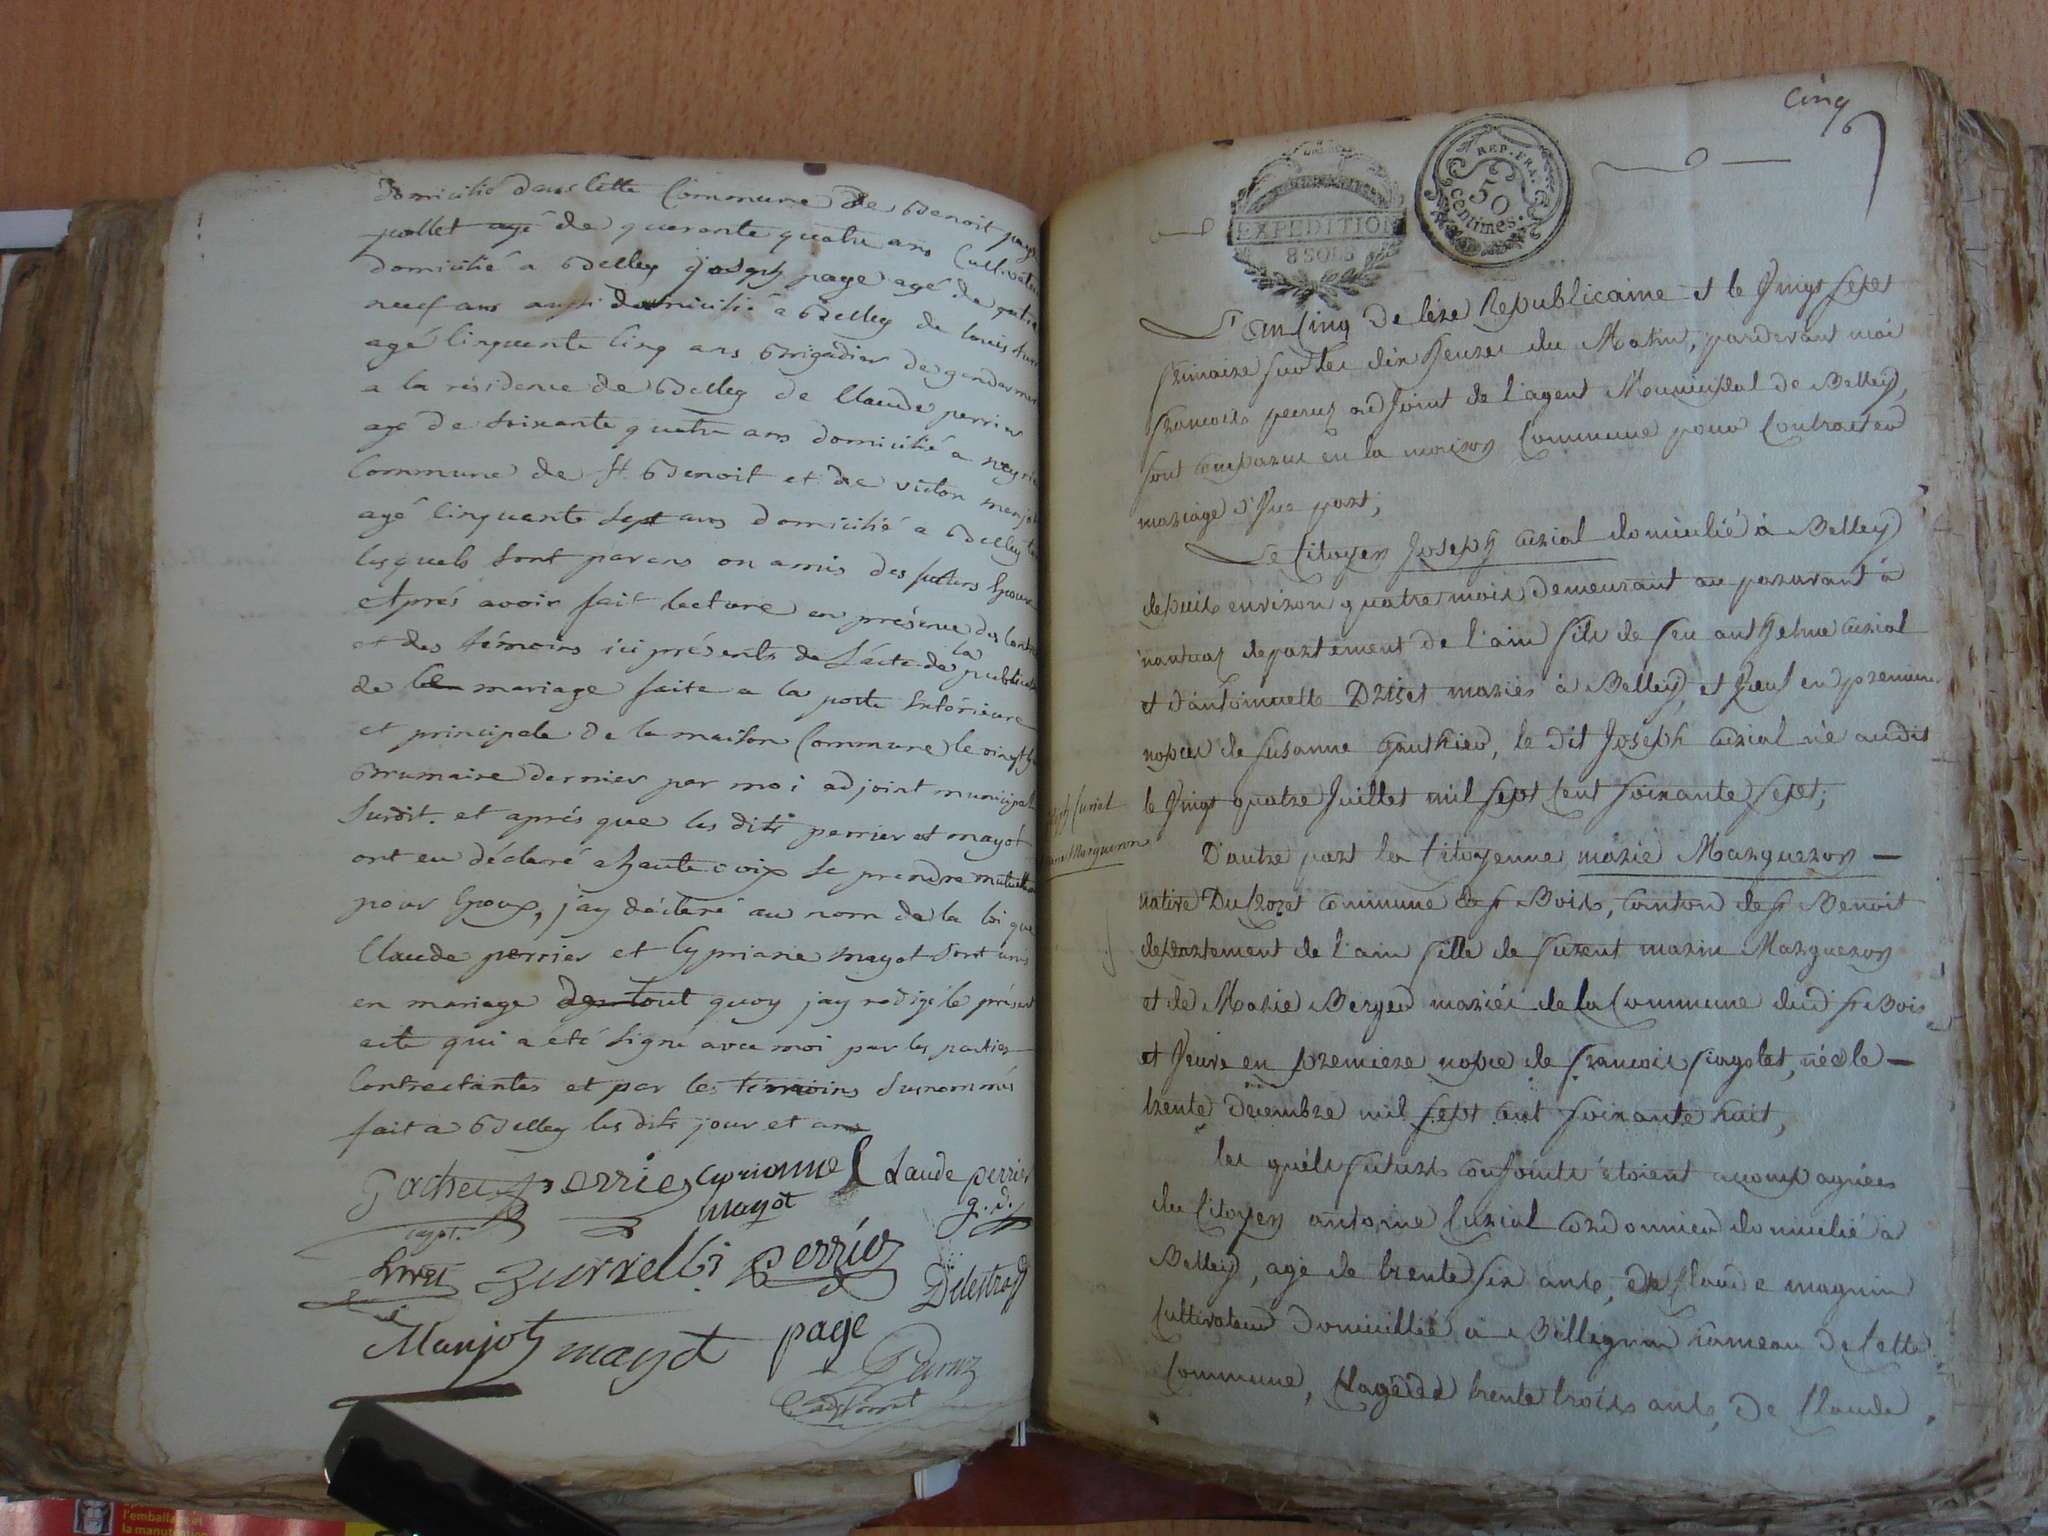 domicilié dans cette Commune de Benoit
pollet agé de quarante quatre ans Cultivateur
domicilié a Belley joseph page agé de
neuf ans aussi domicilié a Belley de louis
agé Cinquante Cinq ans Brigadier de gendarmerie
a la résidence de Belley de Claude perrier
agé de soixante quatre ans domicilié a
Commune de St Benoit et de victor
agé Cinquante sept ans domicilié a Belley
lesquels sont parens ou amis des futurs Epoux
Aprés avoir fait lecture en présence des
et des témoins ici présents de l'acte de la
de mariage faite a la porte Extérieure
et principale de la maison Commune le
Brumaire dernier par moi adjoint municipal
Susdit. et aprés que les dits perrier et mayot
ont eu déclaré a haute voix se prendre mutuellement
pour Epoux, j'ay déclaré au nom de la loi que
Claude perrier et Cypriane mayot sont unis
en mariage de tout quoy jay redigé le présent
acte qui a été signé avec moi par les parties
Contractantes et par les témoins susnommés
fait a Belley les dits jour et an
perrier Cyprianne Claude perrier
mayot
perrier
Manjot mayot page
Peruz
adjoint
Cinq
EXPEDITION
8 SOLS
REP. FRA.
50
Centimes.
L'an Cinq de l'ere Republicaine et le Vingt sept
frimaire sur les dix heures du Matin, pardevant moi
francois peruz adjoint de l'agent Municipal de Belley,
sont comparus en la maison Commune pour Contracter
mariage d'Une part,
Le Citoyen Joseph curial domicilié à Belley
depuis environ quatre mois demeurant au paravant à
nantuaz departement de l'ain fils de feu anthelme curial
et d'antoinette mariés à Belley, et Veuf en premiere
nopces de Susanne Gauthier, le dit Joseph curial né audit
le Vingt quatre Juillet mil sept Cent soixante sept;
Curial
Margueron
D'autre part la Citoyenne marie Margueron
native Du commune de St Bois, canton de St Benoit
departement de l'ain fille de marin Margueron
et de Marie Berger mariés de la Commune dud. St Bois
et Veuve en premiere nopce de francois, née le
trente decembre mil sept cent soixante huit,
les quels futurs conjoints étoient accompagnées
du Citoyen antoine Curial cordonnier domicilié à
Belley, agé de trente six ans, de Claude magnin
Cultivateur domicillié a Billignin hameau de Cette
Commune, agé de trente trois ans, De Claude